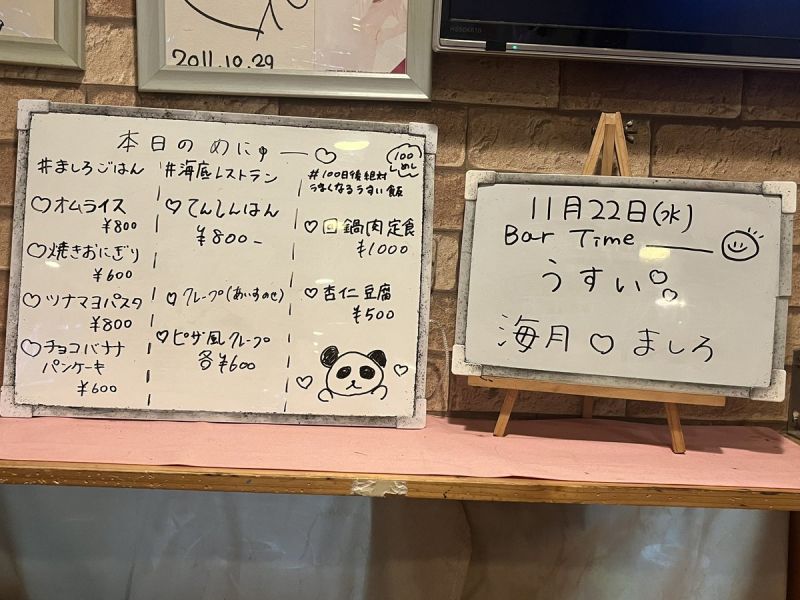 2011.10.29
本日のめにゅー♡
100しめし
#ましろごはん
♡オムライス
¥800
♡焼きおにぎり
¥600
♡ツナマヨパスタ
¥800
♡チョコバナナ
パンケーキ
¥600
#海底レストラン
♡てんしんはん
¥800-
♡クレープ(あいすのせ)
♡ピザ風クレープ
各¥600
#100日後絶対
うまくなるうすい飯
♡回鍋肉定食
¥1000
♡杏仁豆腐
¥500
11月22日(水)
Bar Time
うすい♡
海月♡ましろ